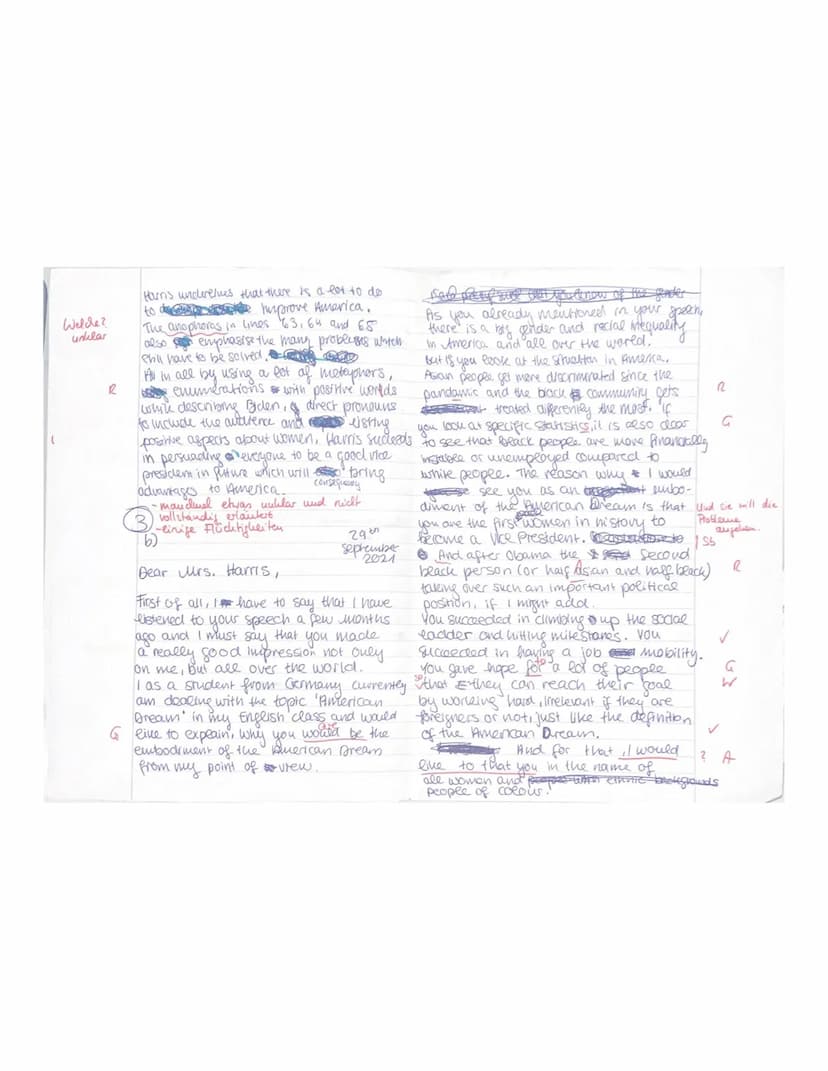 Harris underlines that there is a lot to do
to improve America.
Welche?
unklar
The anaphoras in lines 63, 64 and 65
also emphasise the many problems which
still have to be solved.
All in all by using a lot of metaphors,
R
enumerations with positive worlds
while describing Biden, direct pronouns
to include the audience and listing
positive aspects about women, Harris succeeds
in persuading everyone to be a good vice
president in future which will bring
consequently
advantages to America.
- manchmal etwas unklar und nicht
vollständig erläutert
- einige Flüchtigkeiten
3
b)
29th
September
2021
Dear Mrs. Harris,
First of all, I have to say that I have
listened to your speech a few months
ago and I must say that you made
a really good impression not only
on me, but all over the world.
I as a student from Germany currently
am dealing with the topic 'American
Dream' in my English class and would
are
G
like to explain, why you would be the
embodiment of the American Dream
from my point of view.
As you already mentioned in your speech,
there is a big gender and racial inequality
in America and all over the world.
But if you look at the situation in America,
Asian people get more discriminated since the
pandamic and the black community gets
R
treated differently the most. If
you look at specific statistics, it is also clear
G
to see that black people are more financially
instable or unemployed compared to
white people. The reason why I would
see you as an embo-
diment of the American Dream is that
Und sie will die
Probleme
angehen.
you are the first women in history to
become a Vice President.
Sb
And after Obama the second
black person (or half Asian and half black)
R
taking over such an important political
position, if I might add.
You succeeded in climbing up the social
ladder and hitting milestones. You
✓
succeeded in having a job mobility.
to
You gave hope for a lot of people
G
so
that they can reach their goal
W
by working hard, irrelevant if they are
foreigners or not, just like the definition
✓
of the American Dream.
And for that, I would
? A
like to that you in the name of
all women and people with ethnic backgrounds
people of colour.